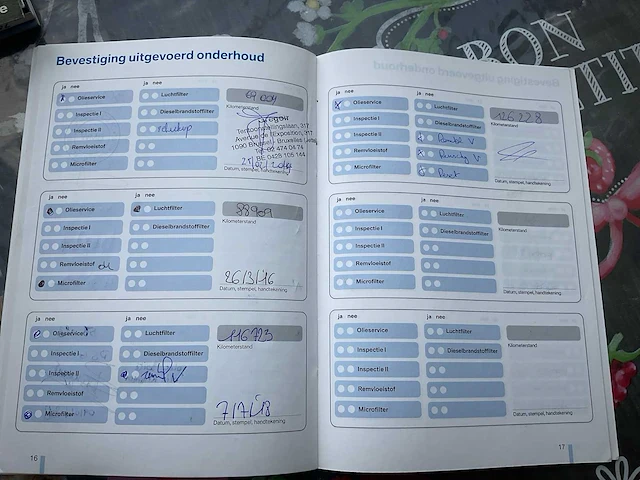 Bevestiging uitgevoerd onderhoud
ja nee ja nee
Olieservice Luchtfilter
Inspectie I Dieselbrandstoffilter
Inspectie II
Remvloeistof
Microfilter
69 004
Kilometerstand
Tentoonstellingslaan, 317
Avenue de l'Exposition, 317
1090 Brussel - Bruxelles
Tel. 02 474 04 74
BE 0428 105 144
Datum, stempel, handtekening
ja nee ja nee
Olieservice Luchtfilter
Inspectie I Dieselbrandstoffilter
Inspectie II
Remvloeistof
Microfilter
88909
Kilometerstand
26/3/16
Datum, stempel, handtekening
ja nee ja nee
Olieservice Luchtfilter
Inspectie I Dieselbrandstoffilter
Inspectie II
Remvloeistof
Microfilter
116723
Kilometerstand
7/7/18
Datum, stempel, handtekening
16
ja nee ja nee
Olieservice Luchtfilter
Inspectie I Dieselbrandstoffilter
Inspectie II
Remvloeistof
Microfilter
126228
Kilometerstand
Datum, stempel, handtekening
ja nee ja nee
Olieservice Luchtfilter
Inspectie I Dieselbrandstoffilter
Inspectie II
Remvloeistof
Microfilter
Kilometerstand
Datum, stempel, handtekening
ja nee ja nee
Olieservice Luchtfilter
Inspectie I Dieselbrandstoffilter
Inspectie II
Remvloeistof
Microfilter
Kilometerstand
Datum, stempel, handtekening
17
BON